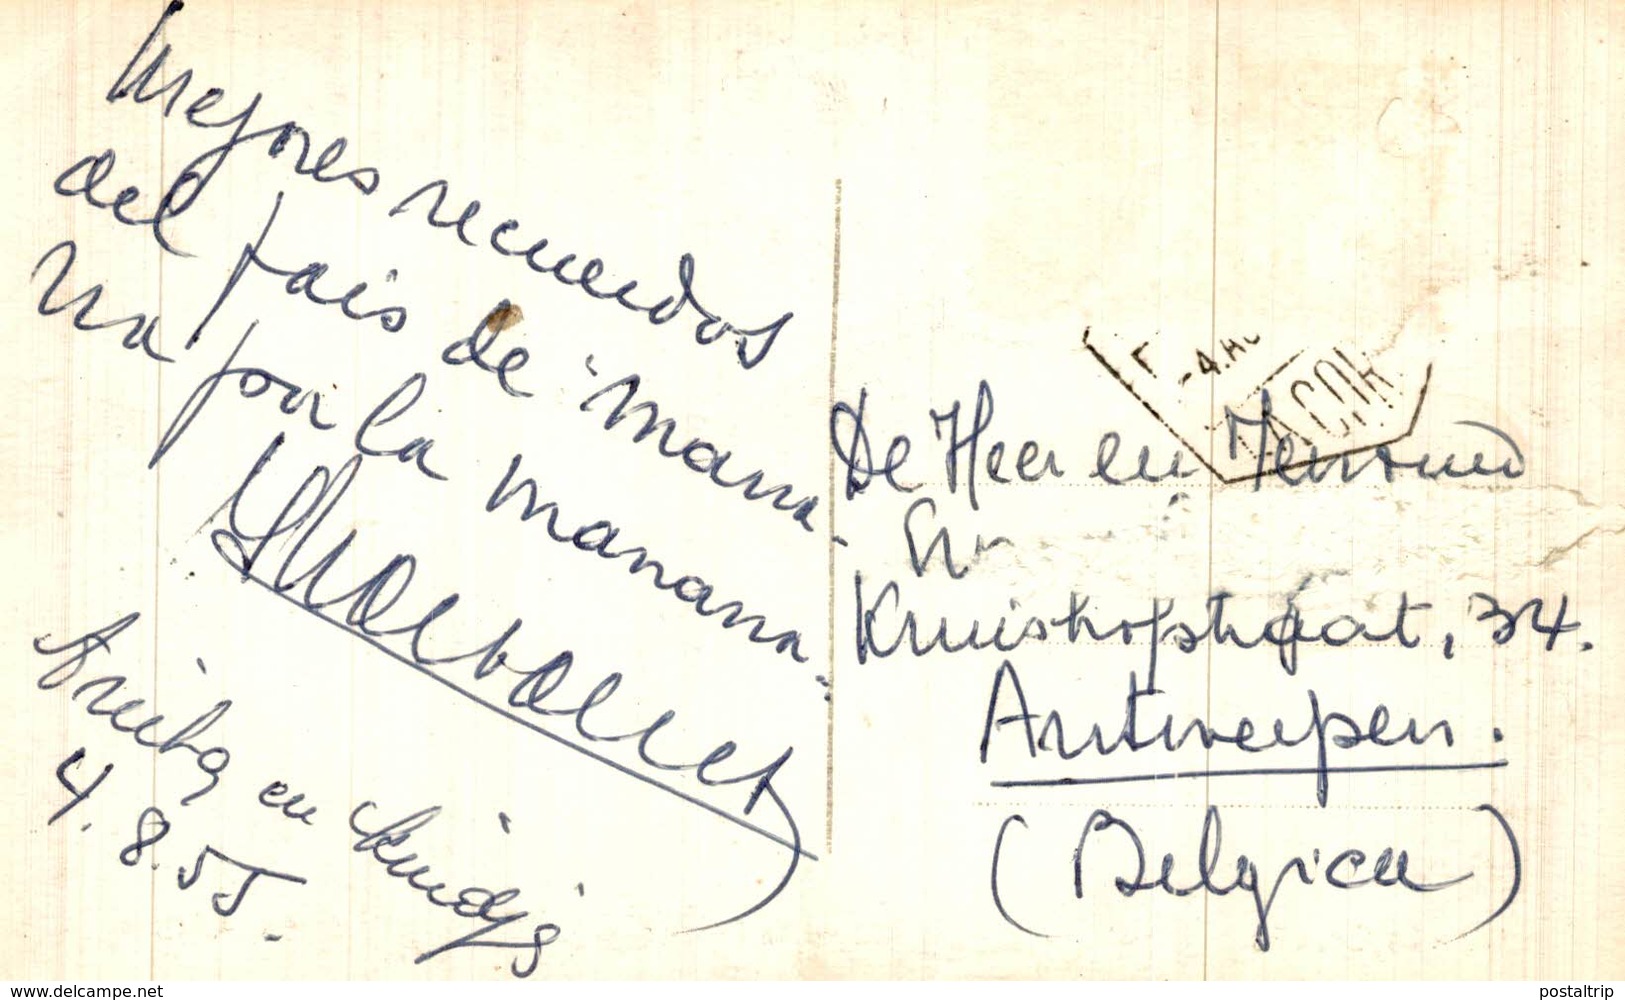 Mejores recuerdos
del pais de mana-
na por la manana.
en kindjs
4.8.55.
-4.
De Heer en Mevrouw
Kruishofstraat, 34.
Antwerpen.
(Belgica)
www.delcampe.net
postaltrip